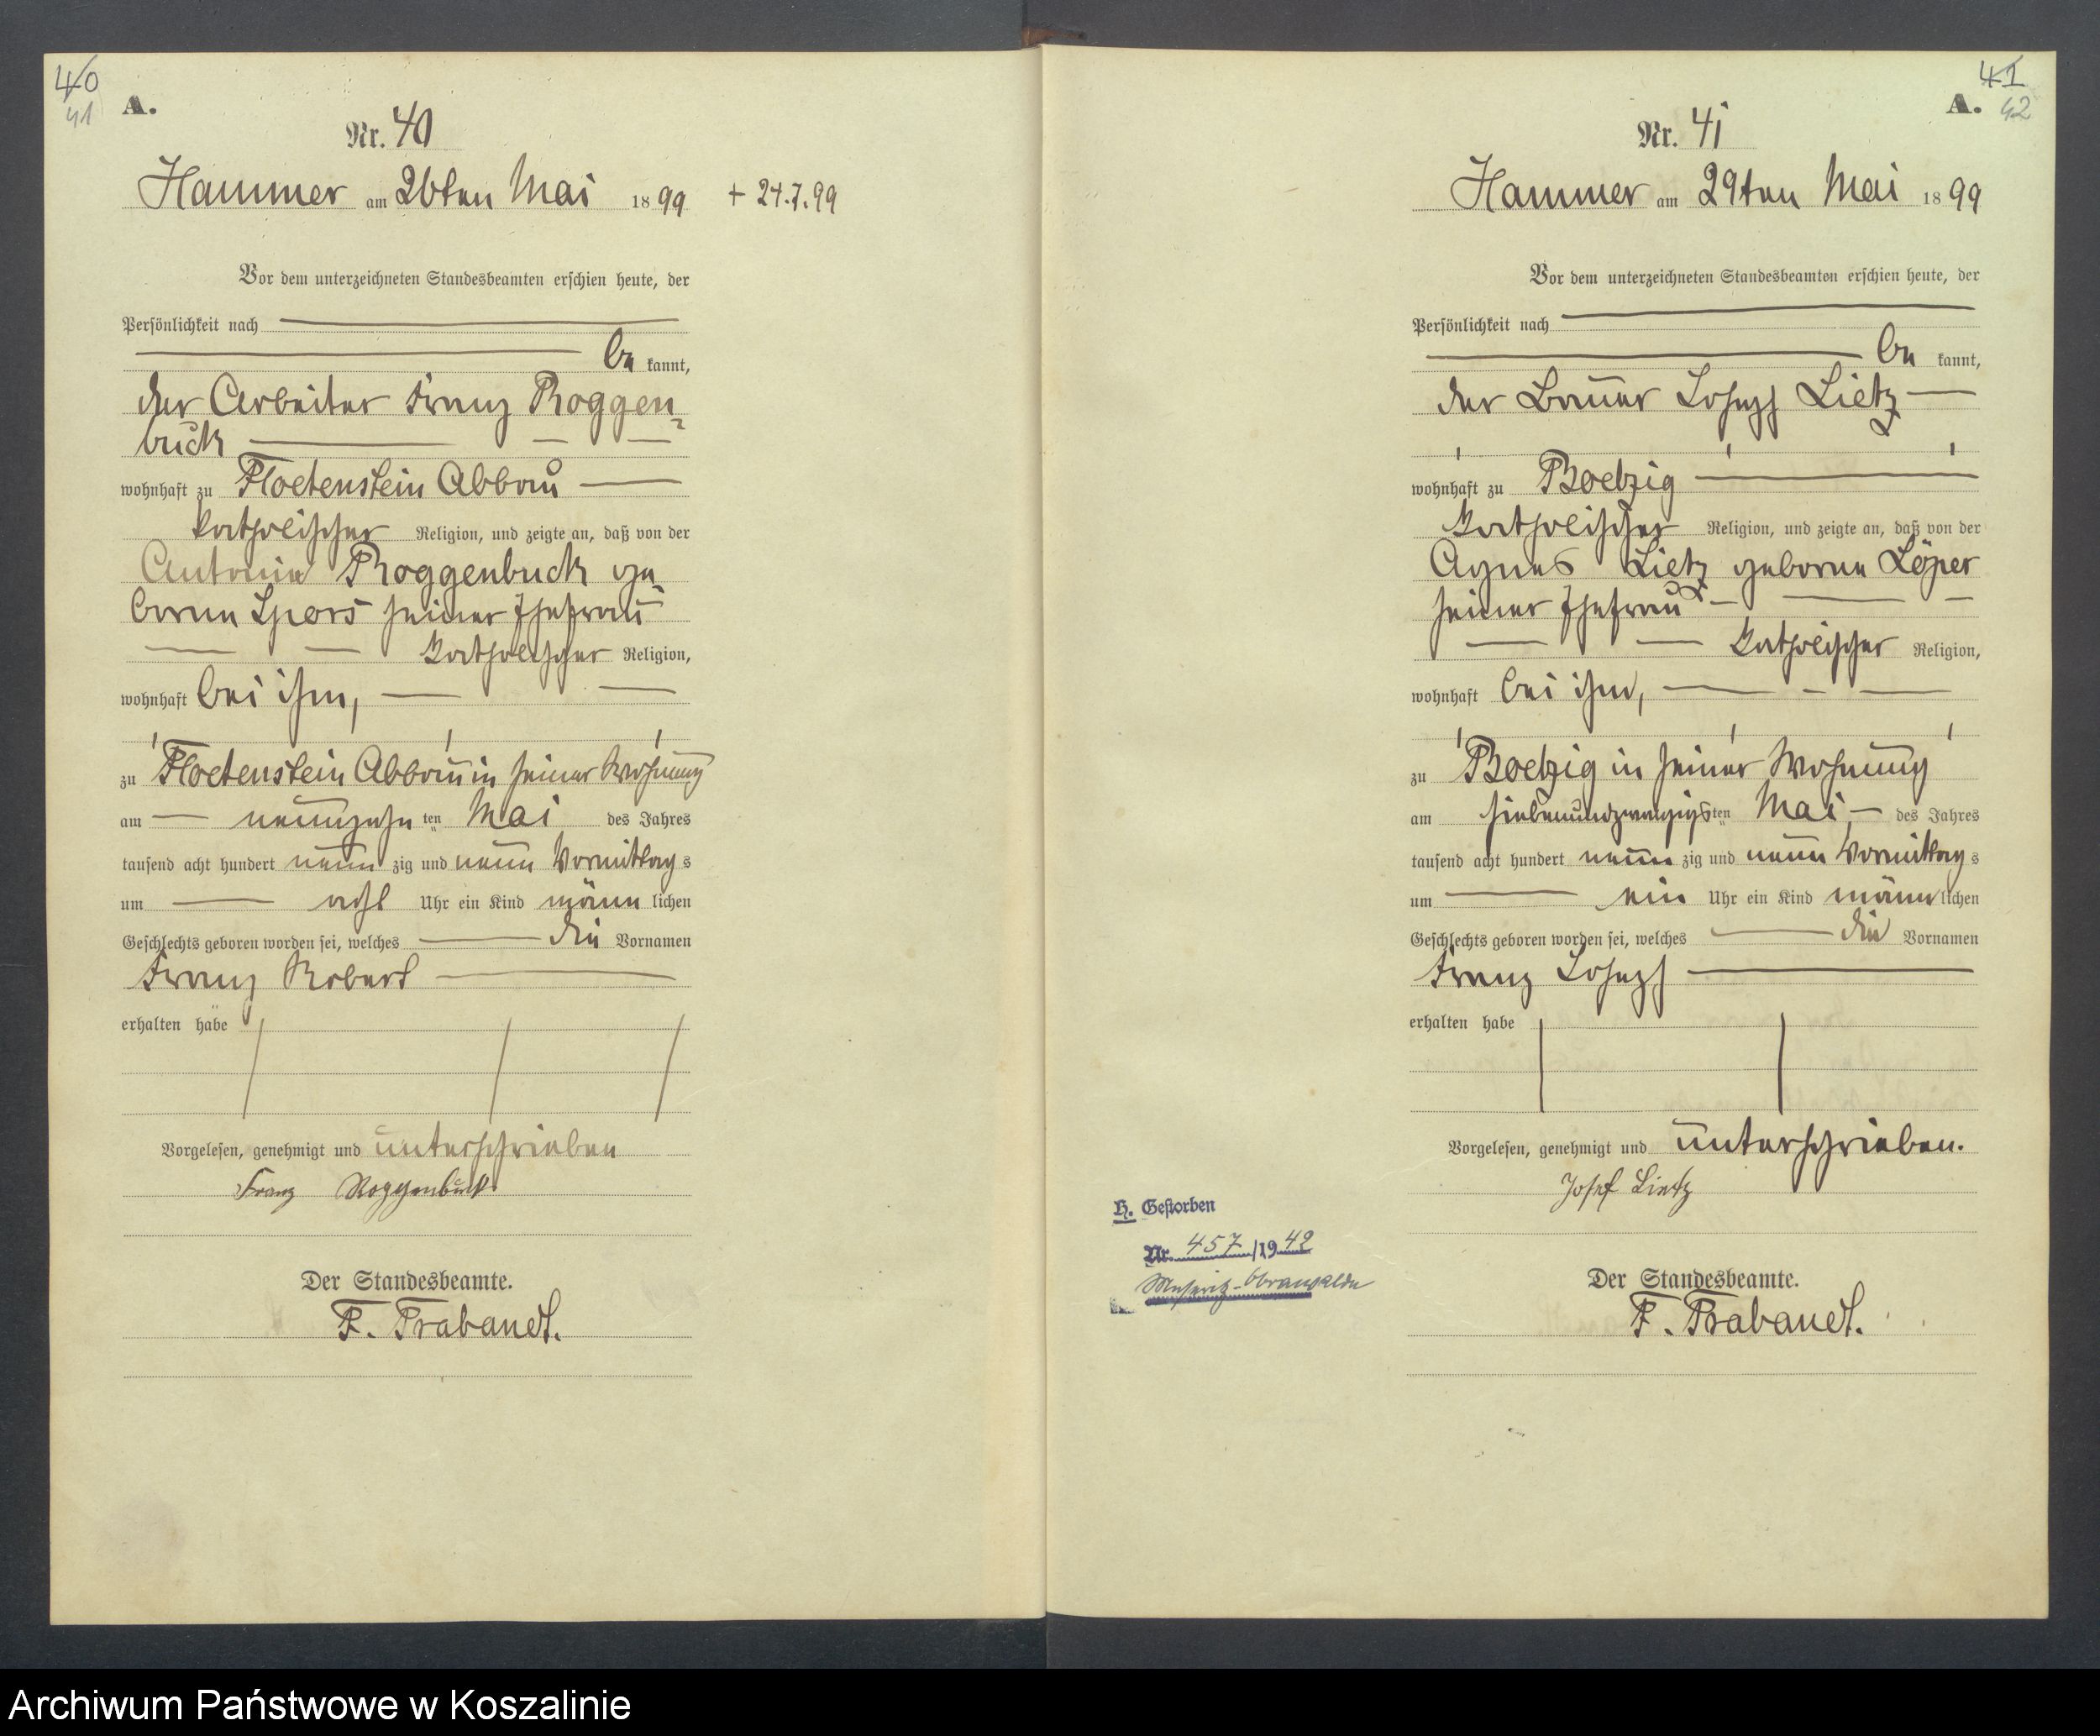 40
41
A.
Nr. 40
Hammer am 26ten Mai 1899 + 24.7.99
Vor dem unterzeichneten Standesbeamten erschien heute, der
Persönlichkeit nach
be kannt,
der Arbeiter Franz Roggen-
buck
wohnhaft zu Floetenstein Abbau
katholischer Religion, und zeigte an, daß von der
Antonie Roggenbuck ge
borne Spors seiner Ehefrau
katholischer Religion,
wohnhaft bei ihm,
zu Floetenstein Abbau in seiner Wohnung
am neunzehn ten Mai des Jahres
tausend acht hundert neun zig und neun Vormittag s
um acht Uhr ein Kind männ lichen
Geschlechts geboren worden sei, welches die Vornamen
Franz Robert
erhalten habe
Vorgelesen, genehmigt und unterschrieben
Franz Roggenbuck
Der Standesbeamte.
F. Trabandt.
41
A. 42
Nr. 41
Hammer am 29ten Mai 1899
Vor dem unterzeichneten Standesbeamten erschien heute, der
Persönlichkeit nach
be kannt,
der Bauer Joseph Lietz
wohnhaft zu Boelzig
katholischer Religion, und zeigte an, daß von der
Agnes Lietz geborne Löper
seiner Ehefrau
katholischer Religion,
wohnhaft bei ihm,
zu Boelzig in seiner Wohnung
am siebenundzwanzigs ten Mai des Jahres
tausend acht hundert neun zig und neun Vormittag s
um ein Uhr ein Kind männ lichen
Geschlechts geboren worden sei, welches die Vornamen
Franz Joseph
erhalten habe
Vorgelesen, genehmigt und unterschrieben.
Josef Lietz
H. Gestorben
Nr. 457/1942
Meseritz-Obrawalde
Der Standesbeamte.
F. Trabandt.
Archiwum Państwowe w Koszalinie